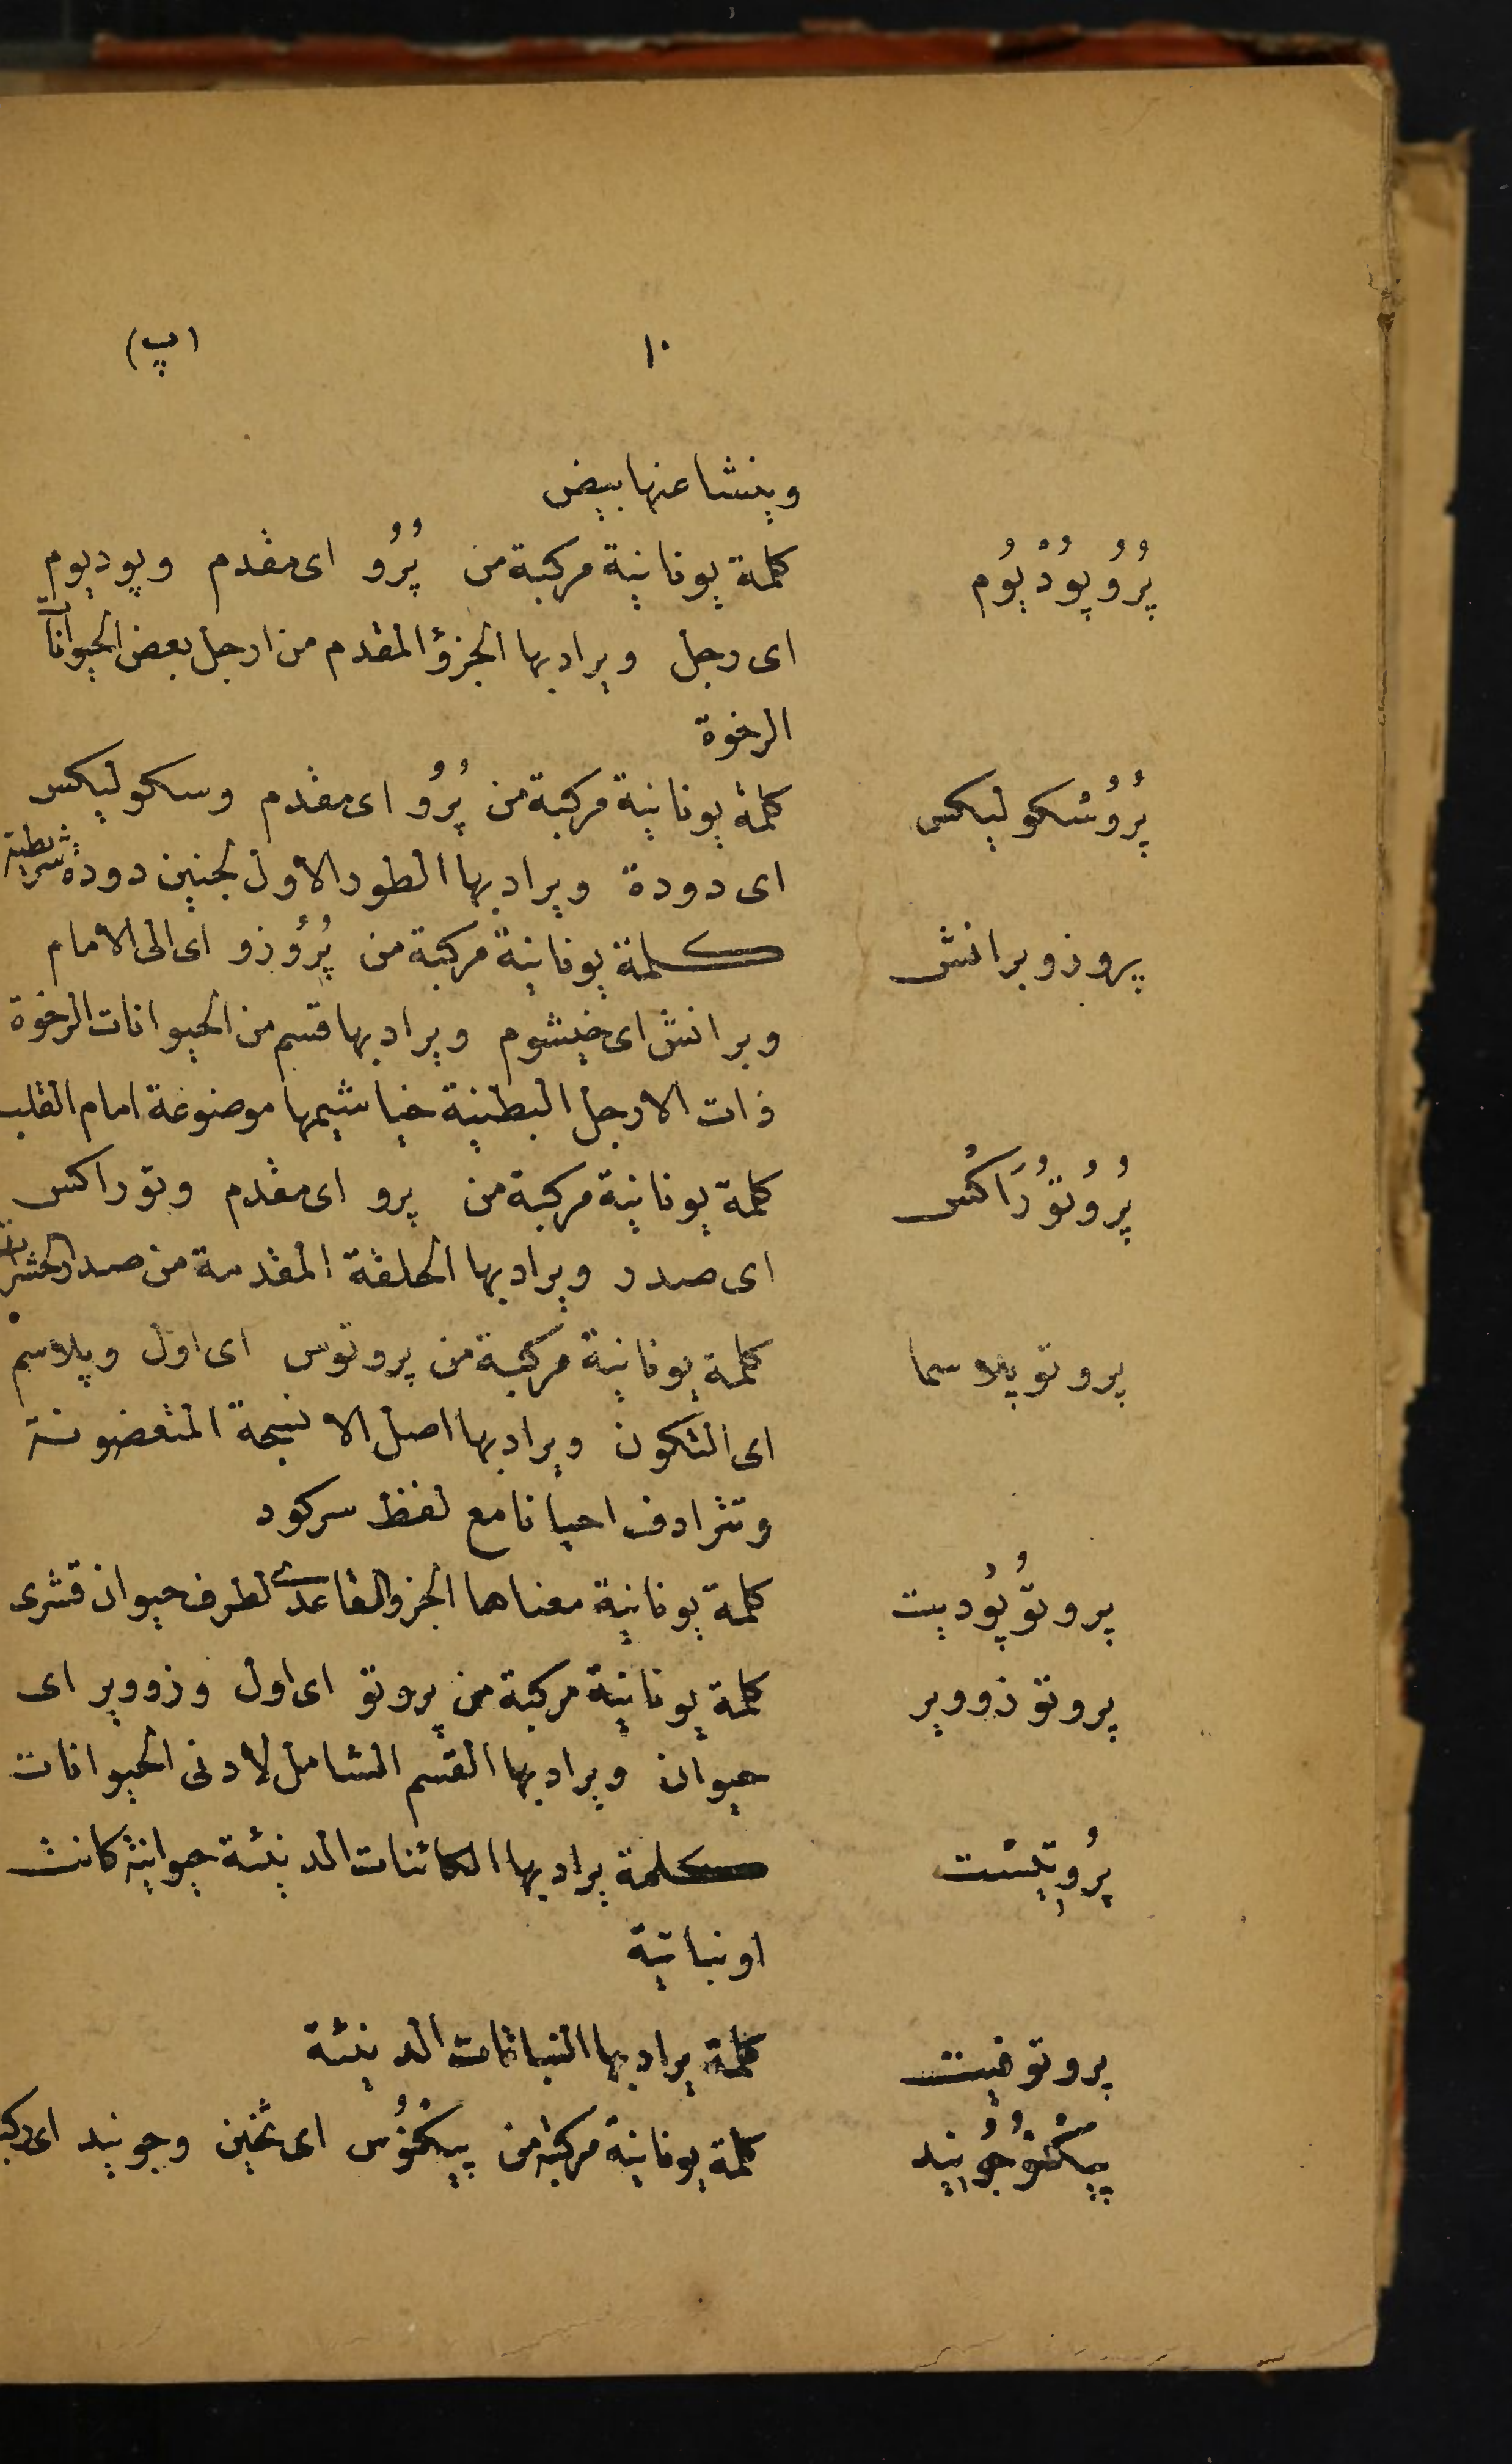 ١٠ (پ)
وينشا عنها بيض
پُرُوپُودْيُوم كلمة يونانية مركبة من پُرُو اى مقدم وپوديوم
اى رجل ويراد بها الجزؤ المقدم من ارجل بعض الحيوانات
الرخوة
پُرُوسْكوليكس كلمة يونانية مركبة من پُرُو اى مقدم وسكوليكس
اى دودة ويراد بها الطور الاول لجنين دودة شريطية
پروزوبرانش كلمة يونانية مركبة من پُرُوزو اى الى الامام
وبرانش اى خيشوم ويراد بها قسم من الحيوانات الرخوة
ذات الارجل البطنية خياشيمها موضوعة امام القلب
پُرُوتُورَاكْس كلمة يونانية مركبة من پرو اى مقدم وتوراكس
اى صدر ويراد بها الحلقة المقدمة من صدر الحشرات
پروتوپلاسما كلمة يونانية مركبة من پروتوس اى اول وپلاسم
اى التكون ويراد بها اصل الانسجة المتعضونة
وتترادف احيانا مع لفظ سركود
پروتُوپُوديت كلمة يونانية معناها الجزو القاعدى لطرف حيوان قشرى
پروتوزووير كلمة يونانية مركبة من پروتو اى اول وزووير اى
حيوان ويراد بها القسم الشامل لادنى الحيوانات
پرُوتِيسْت كلمة يراد بها الكائنات الدنيئة حيوانية كانت
او نباتية
پروتوفيت كلمة يراد بها النباتات الدنيئة
پيكْنُوجُونيد كلمة يونانية مركبة من پيكْنُوس اى ثخين وجونيد اى